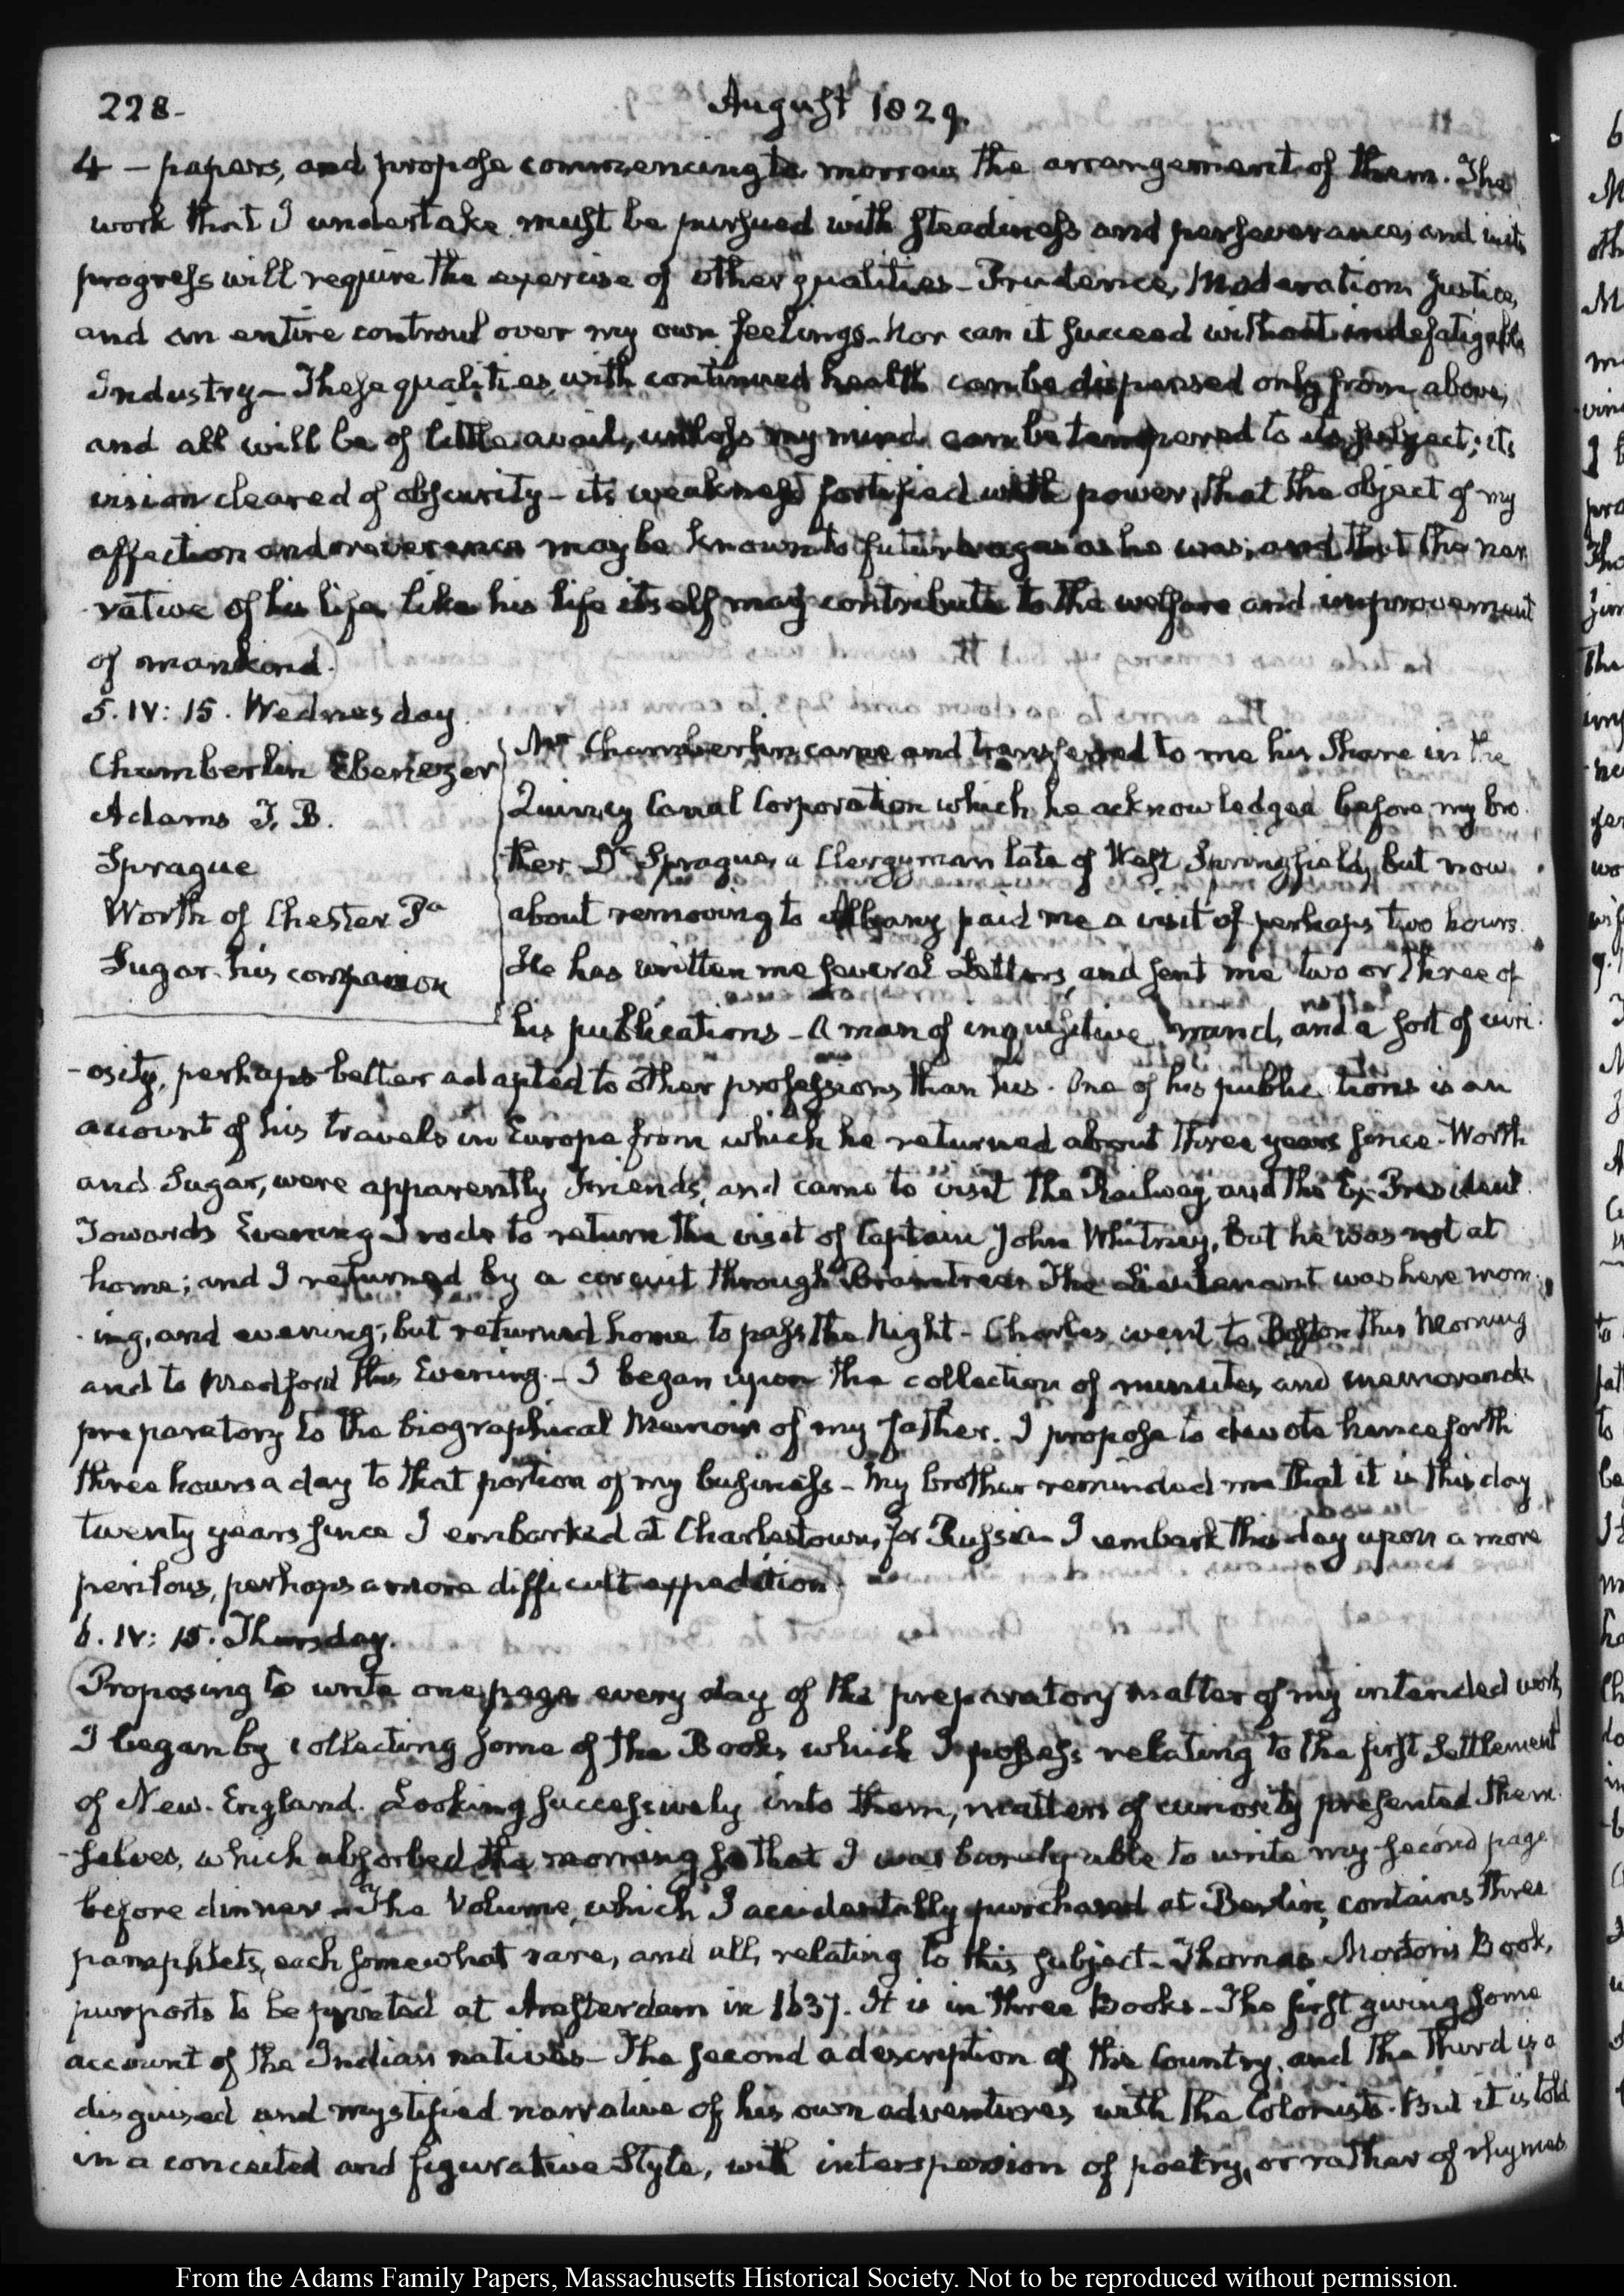 228-
August 1829.
4 – papers, and propose commencing to morrow the arrangement of them. The
work that I undertake must be pursued with steadiness and perseverance, and in its
progress will require the exercise of other qualities – Prudence, Moderation, Justice,
and an entire controul over my own feelings – Nor can it succeed without indefatigable
Industry – These qualities, with continued health can be dispensed only from above,
and all will be of little avail, unless my mind can be tempered to its subject; its
vision cleared of obscurity – its weakness fortified with power, that the object of my
affection and reverence may be known to future ages as he was; and that the nar
rative of his life, like his life itself may contribute to the welfare and improvement
of mankind.
5. IV: 15. Wednesday.
Chamberlin Ebenezer
Adams T. B.
Sprague
Worth of Chester Pa
Sugar his companion
Mr Chamberlin came and transferred to me his Share in the
Quincy Canal Corporation which he acknowledged before my bro
ther. Dr Sprague, a Clergyman late of West Springfield, but now
about removing to Albany paid me a visit of perhaps two hours.
He has written me several Letters, and sent me two or three of
his publications – A man of inquisitive mind, and a sort of curi
-osity, perhaps better adapted to other professions than his. One of his publications is an
account of his travels in Europe from which he returned about three years since. Worth
and Sugar, were apparently Friends, and came to visit the Railway and the Ex-President.
Towards Evening I rode to return the visit of Captain John Whitney, but he was not at
home; and I returned by a circuit through Braintree. The Lieutenant was here morn
-ing, and evening; but returned home to pass the Night – Charles went to Boston this Morning
and to Medford this Evening. – I began upon the collection of minutes and memoranda
preparatory to the biographical Memoir of my father. I propose to devote henceforth
three hours a day to that portion of my business – My brother reminded me that it is this day
twenty years since I embarked at Charlestown, for Russia – I embark this day upon a more
perilous, perhaps a more difficult expedition.
6. IV: 15. Thursday.
Proposing to write one page every day of the preparatory matter of my intended work,
I began by collecting some of the Books which I possess relating to the first Settlement
of New-England. Looking successively into them, matters of curiosity presented them
-selves, which absorbed the morning so that I was barely able to write my second page
before dinner – The Volume, which I accidentally purchased at Berlin, contains three
pamphlets, each somewhat rare, and all, relating to this subject – Thomas Morton's Book,
purports to be printed at Amsterdam in 1637. It is in three Books – The first giving some
account of the Indian natives – The second a description of the Country, and the Third is a
disguised and mystified narrative of his own adventures with the Colonists. But it is told
in a conceited and figurative Style, with interspersion of poetry, or rather of rhymes
From the Adams Family Papers, Massachusetts Historical Society. Not to be reproduced without permission.